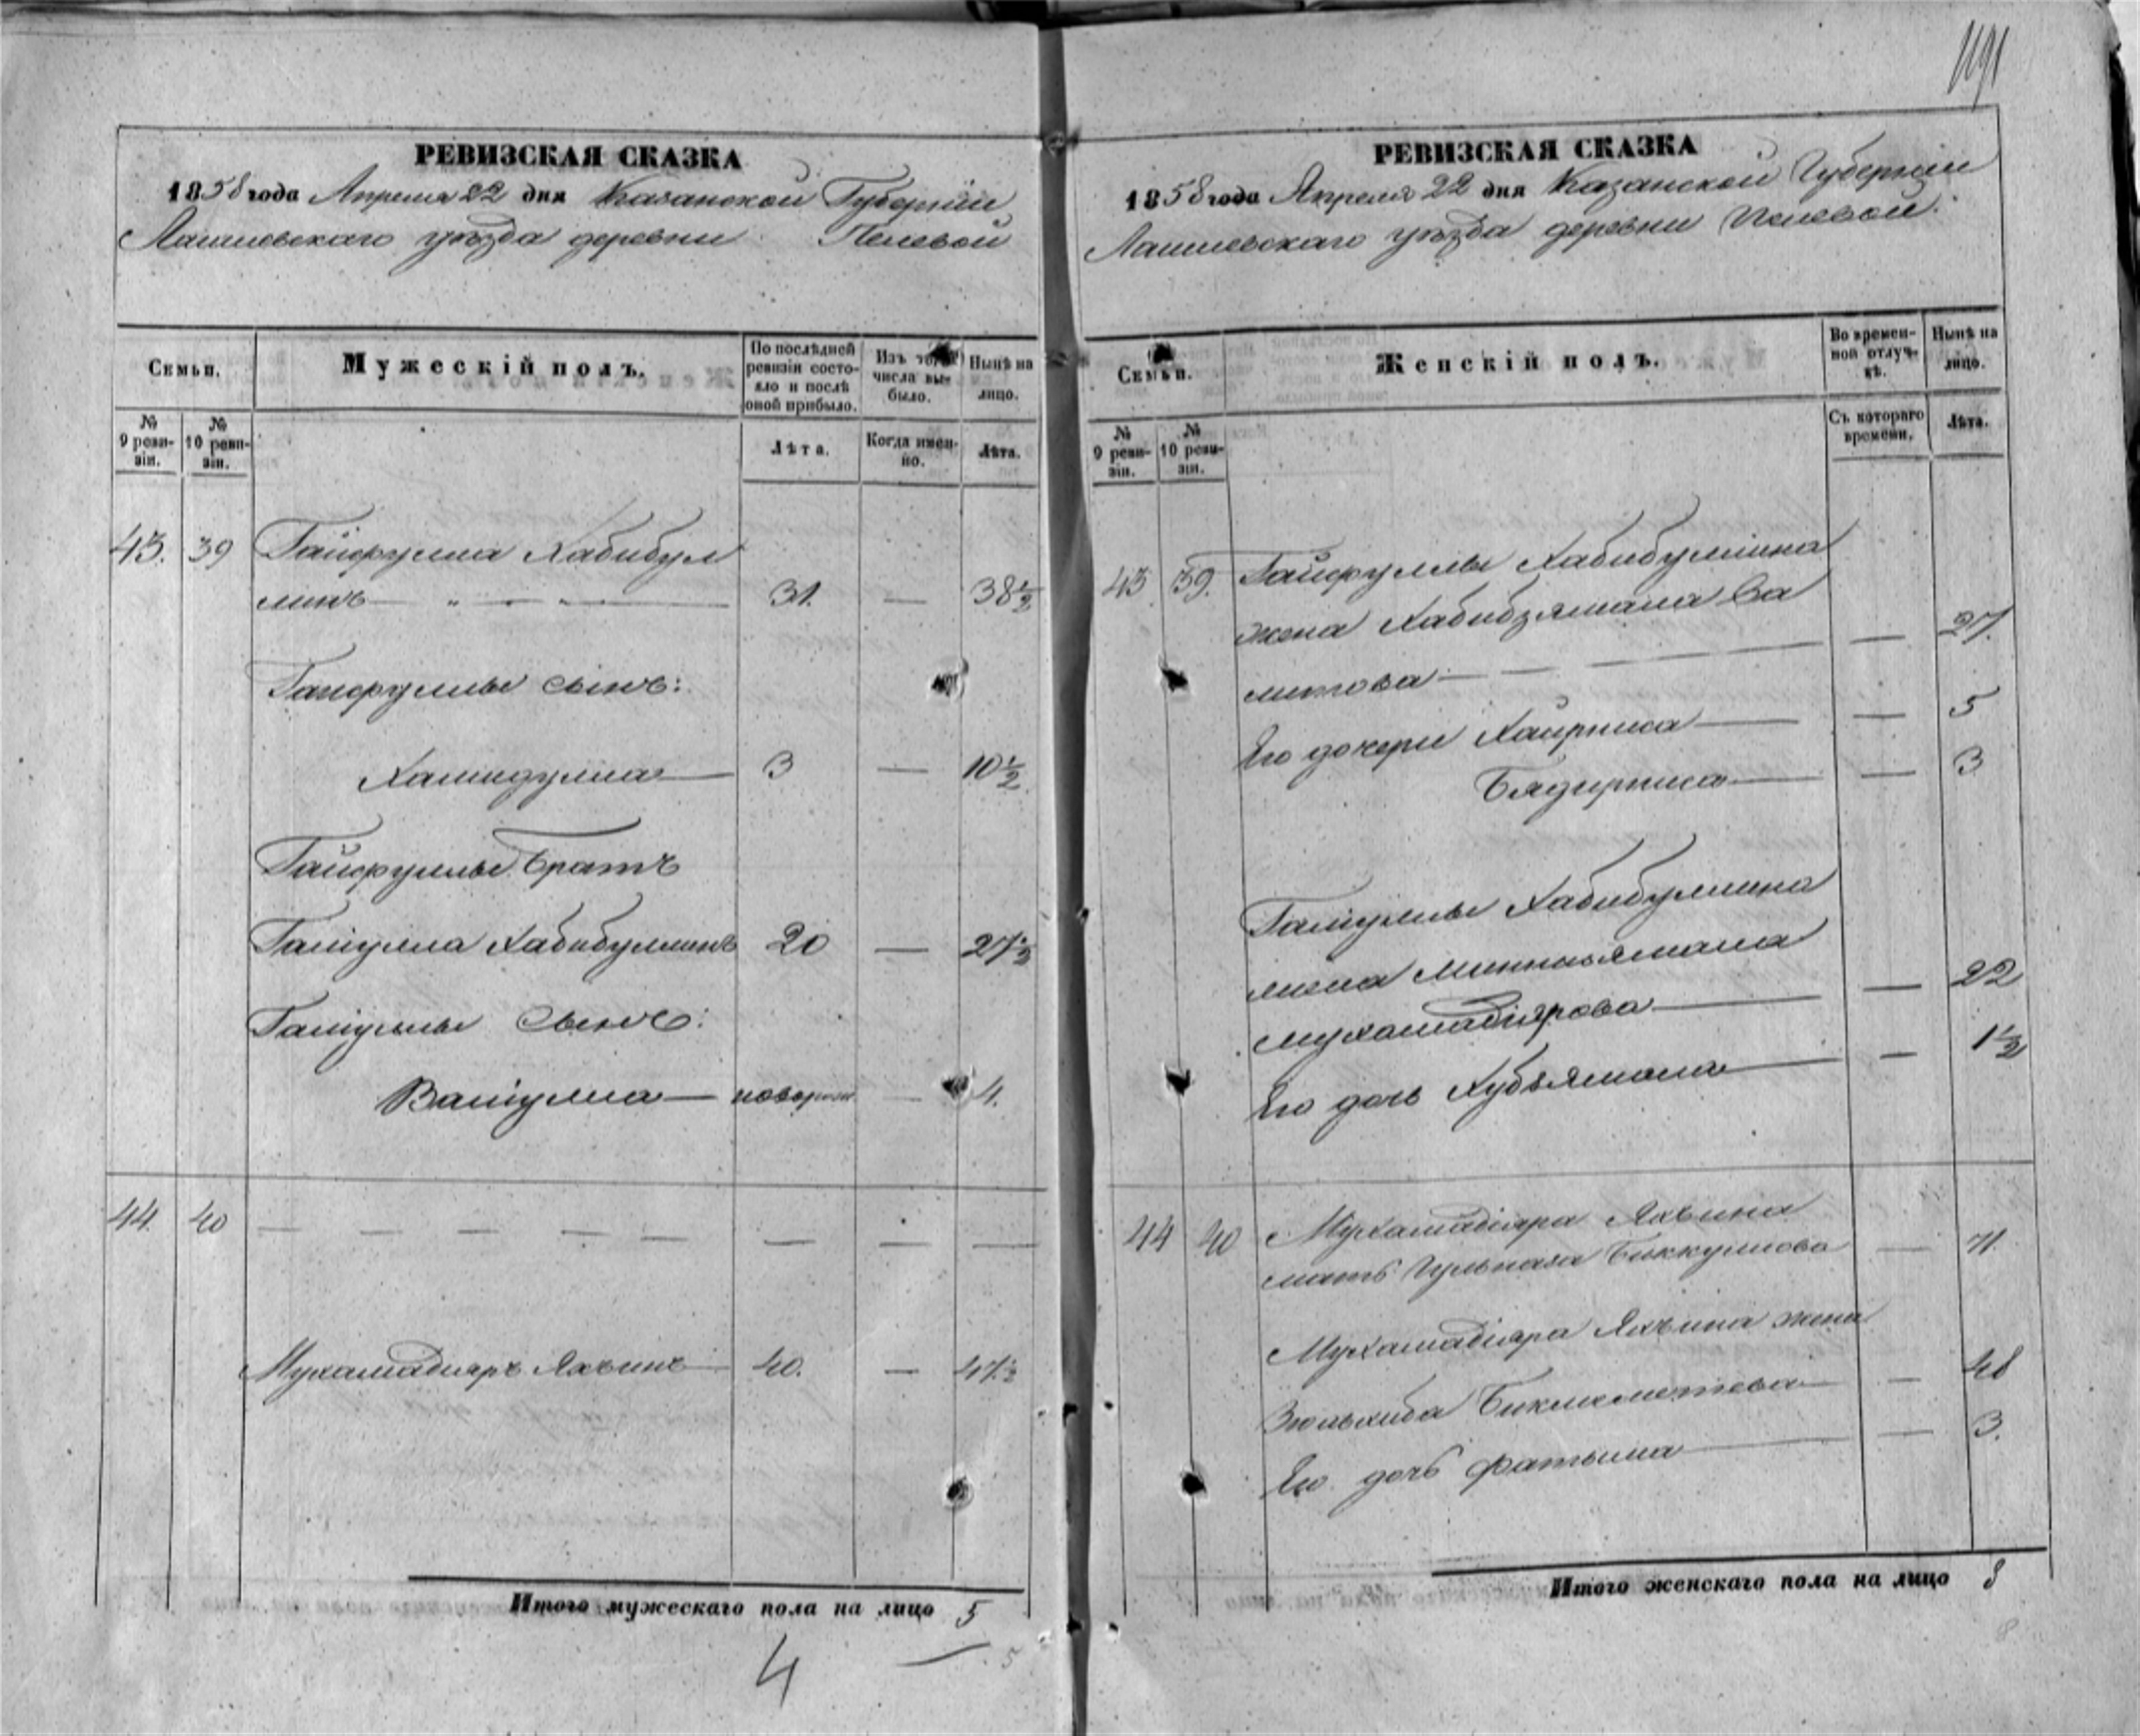 1191
РЕВИЗСКАЯ СКАЗКА
1858 года Апреля 22 дня Казанской Губернiи
Лаишевскаго уѣзда деревни Пелевой
Семьи.
Мужескiй полъ.
По послѣдней ревизiи состояло и послѣ оной прибыло.
Изъ того числа выбыло.
Нынѣ на лицо.
№ 9 ревизiи.
№ 10 ревизiи.
Лѣта.
Когда именно.
Лѣта.
43. 39 Гайфулла Хабибул
линъ — " — " — 31. — 38½
Гайфуллы сынъ:
Хамидулла — 3 — 10½
Гайфуллы братъ
Галiулла Хабибуллинъ 20 — 27½
Галiуллы сынъ:
Валiулла — новорож — 4.
44. 40 — — — — — — — —
Мухамадiяръ Яхъинъ — 40. — 47½
Итого мужескаго пола на лицо 5
4 — 5
РЕВИЗСКАЯ СКАЗКА
1858 года Апреля 22 дня Казанской Губернiи
Лаишевскаго уѣзда деревни Пелевой.
Семьи.
Женскiй полъ.
Во временной отлучкѣ.
Нынѣ на лицо.
№ 9 ревизiи.
№ 10 ревизiи.
Съ котораго времени.
Лѣта.
43 39. Гайфуллы Хабибуллина
жена Хабибзямала Ва
литова — — — 27.
Его дочери Хайрниса — — 5
Бядирниса — — 3
Галiуллы Хабибуллина
жена Миннизямала
Мухамадiярова — — 22
Его дочь Хубзямала — — 1½
44 40 Мухамадiяра Яхъина
мать Гульназа Биккулова — 71.
Мухамадiяра Яхъина жена
Зюльхиба Бикмеметева — — 48
Его дочь Фатыма — — 3.
Итого женскаго пола на лицо 8
8